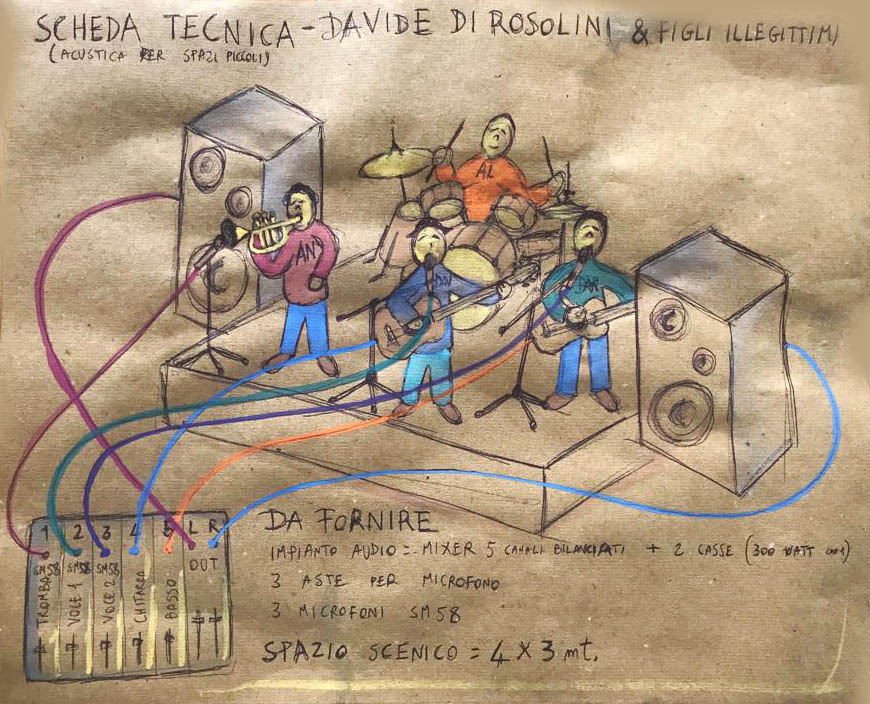 SCHEDA TECNICA - DAVIDE DI ROSOLINI & FIGLI ILLEGITTIMI
(ACUSTICA PER SPAZI PICCOLI)
AL
AN
DAV
DAR
1 2 3 4 5 L R
SM58 SM58 SM58 OUT
TROMBA
VOCE 1
VOCE 2
CHITARRA
BASSO
DA FORNIRE
IMPIANTO AUDIO = MIXER 5 CANALI BILANCIATI + 2 CASSE (300 WATT
3 ASTE PER MICROFONO
3 MICROFONI SM58
SPAZIO SCENICO = 4 X 3 mt.